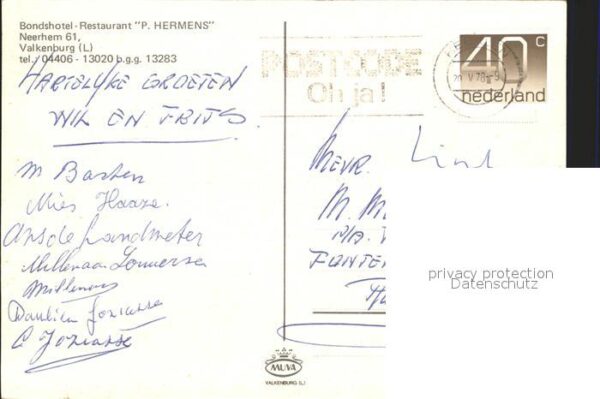 Bondshotel-Restaurant "P. HERMENS"
Neerhem 61,
Valkenburg (L)
tel. 04406 - 13020 b.g.g. 13283
HARTELYKE GROETEN
WIL EN FRITS.
M Basten
Mies Haaze.
Ans de Landmeter
Paulien Joziasse
C Joziasse
POSTCODE
Oh ja!
V 78
40 c
nederland
MEVR.
M. M
FONTE
privacy protection
Datenschutz
MUVA
VALKENBURG (L.)